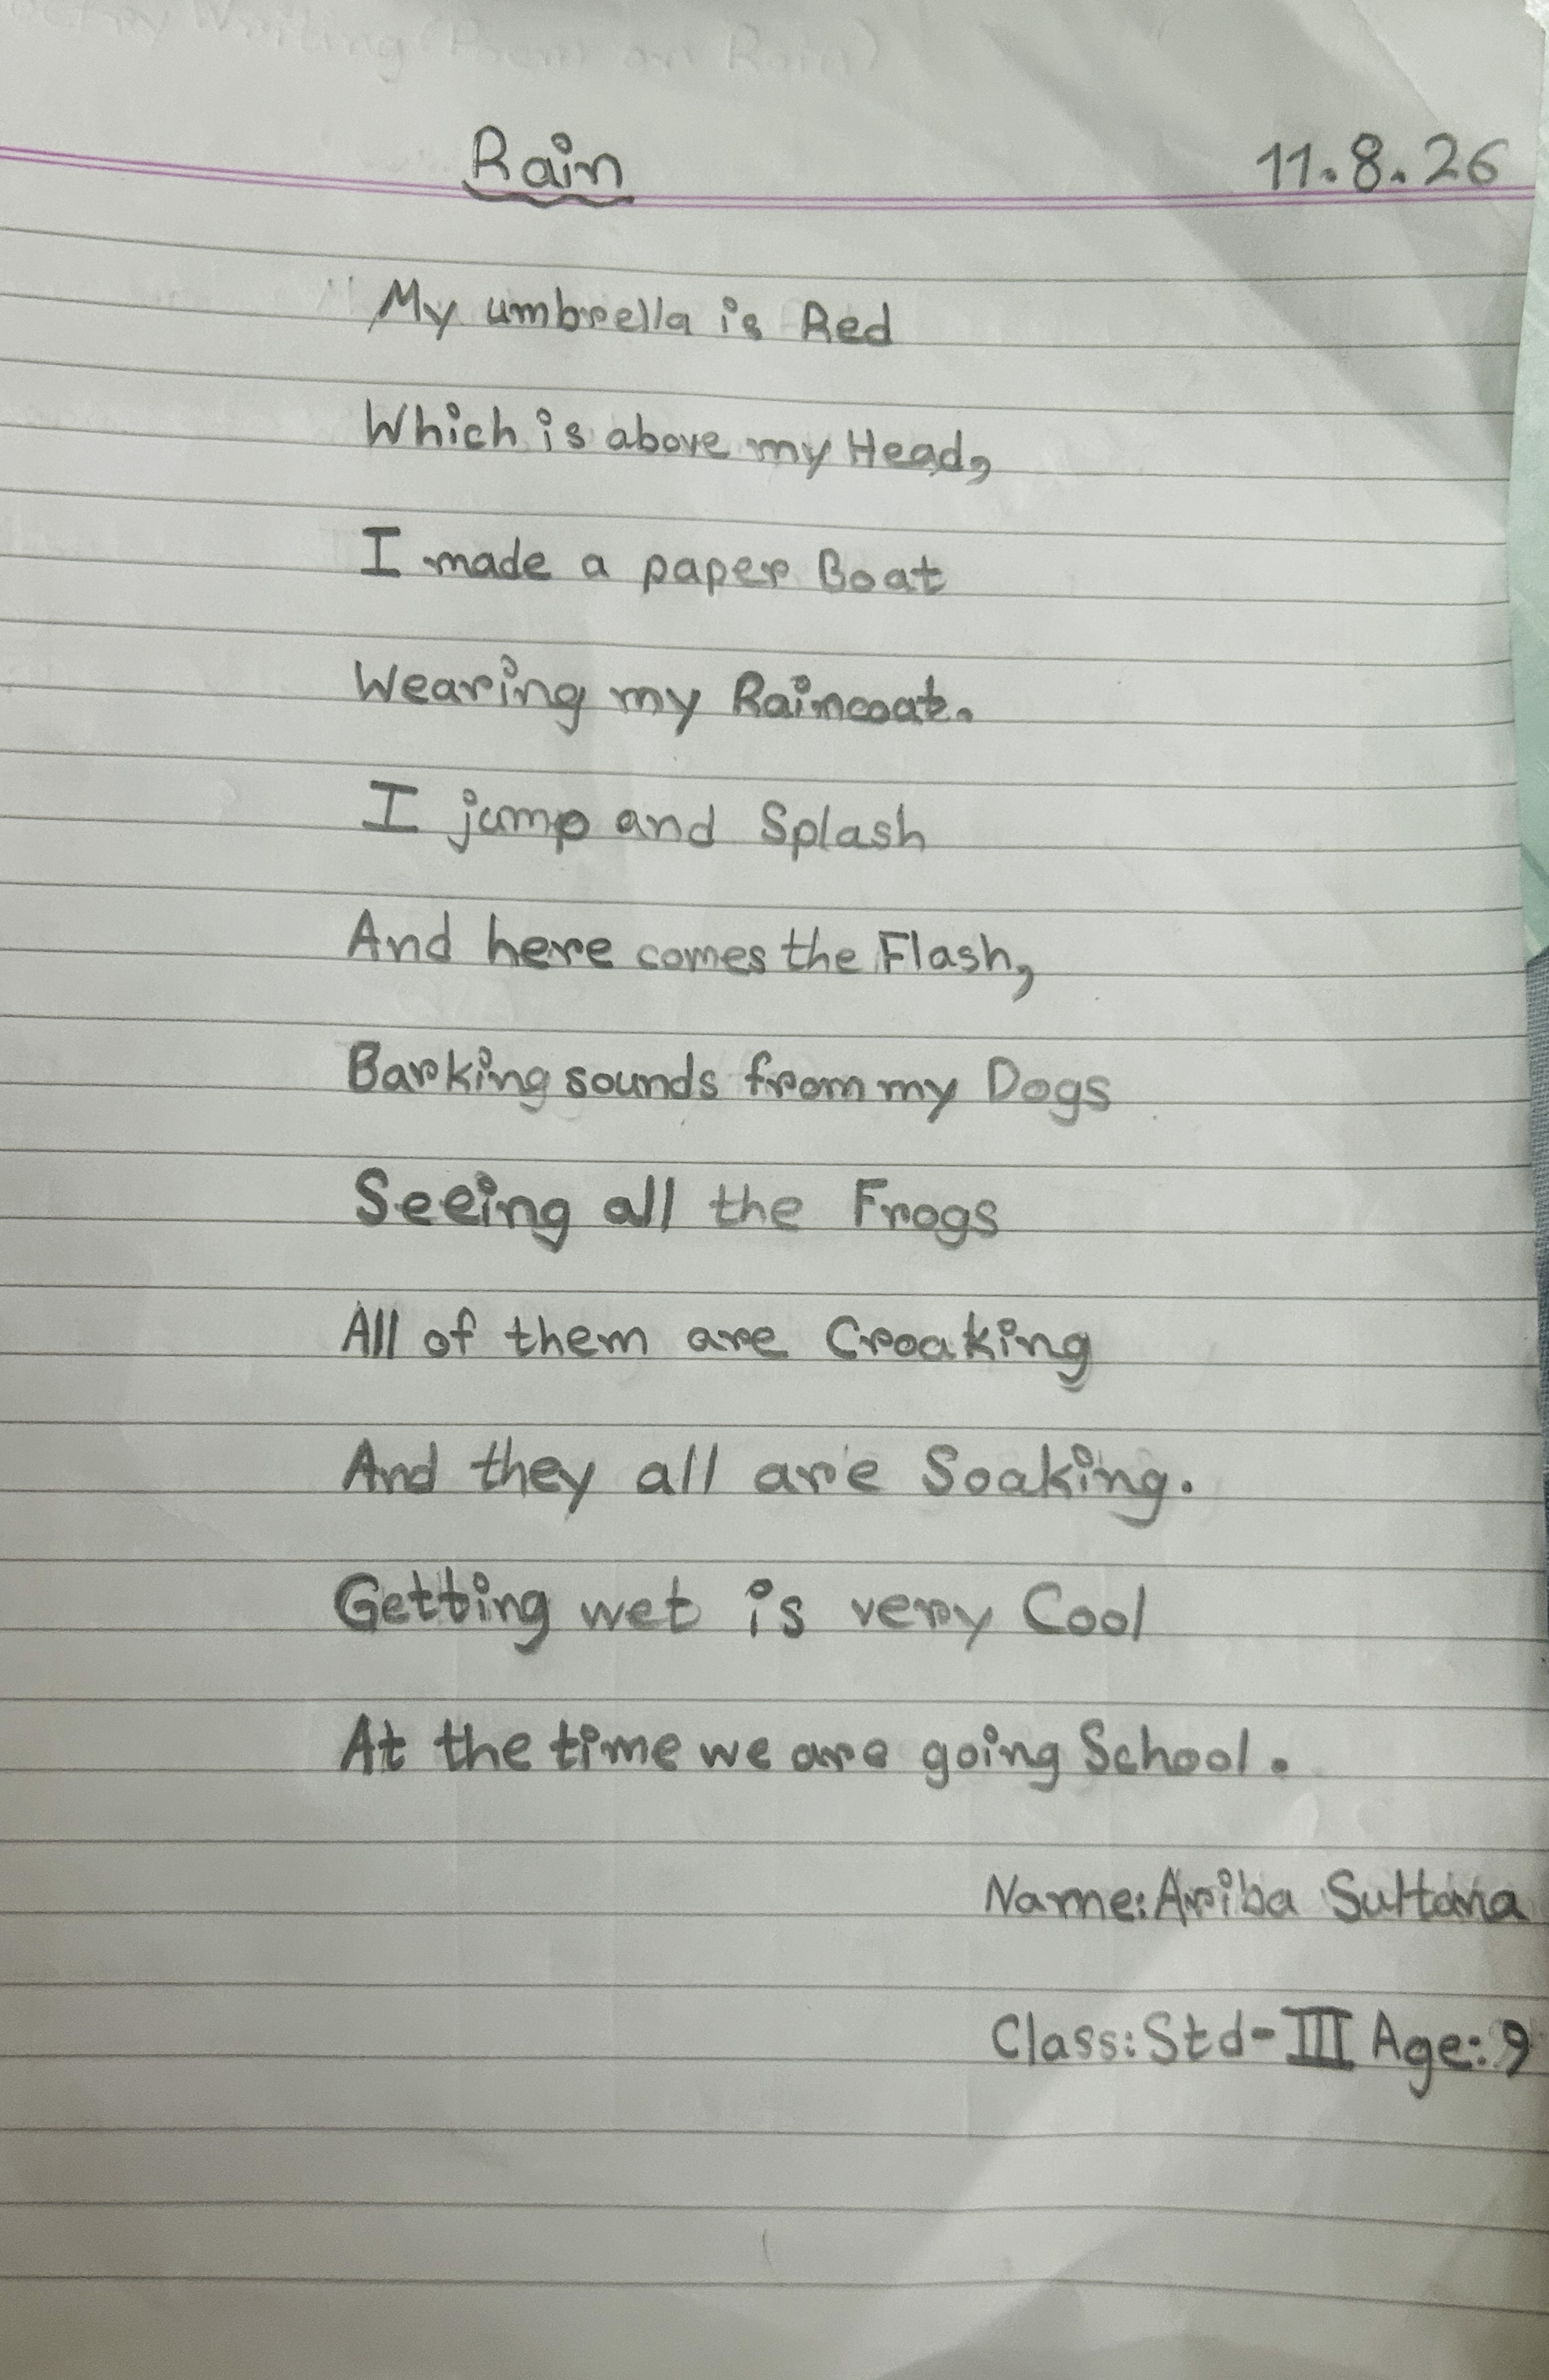 Rain 11.8.26
My umbrella is Red
Which is above my Head,
I made a paper Boat
Wearing my Raincoat.
I jump and Splash
And here comes the Flash,
Barking sounds from my Dogs
Seeing all the Frogs
All of them are Croaking
And they all are Soaking.
Getting wet is very Cool
At the time we are going School.
Name: Ariba Sultana
Class: Std-III Age: 9